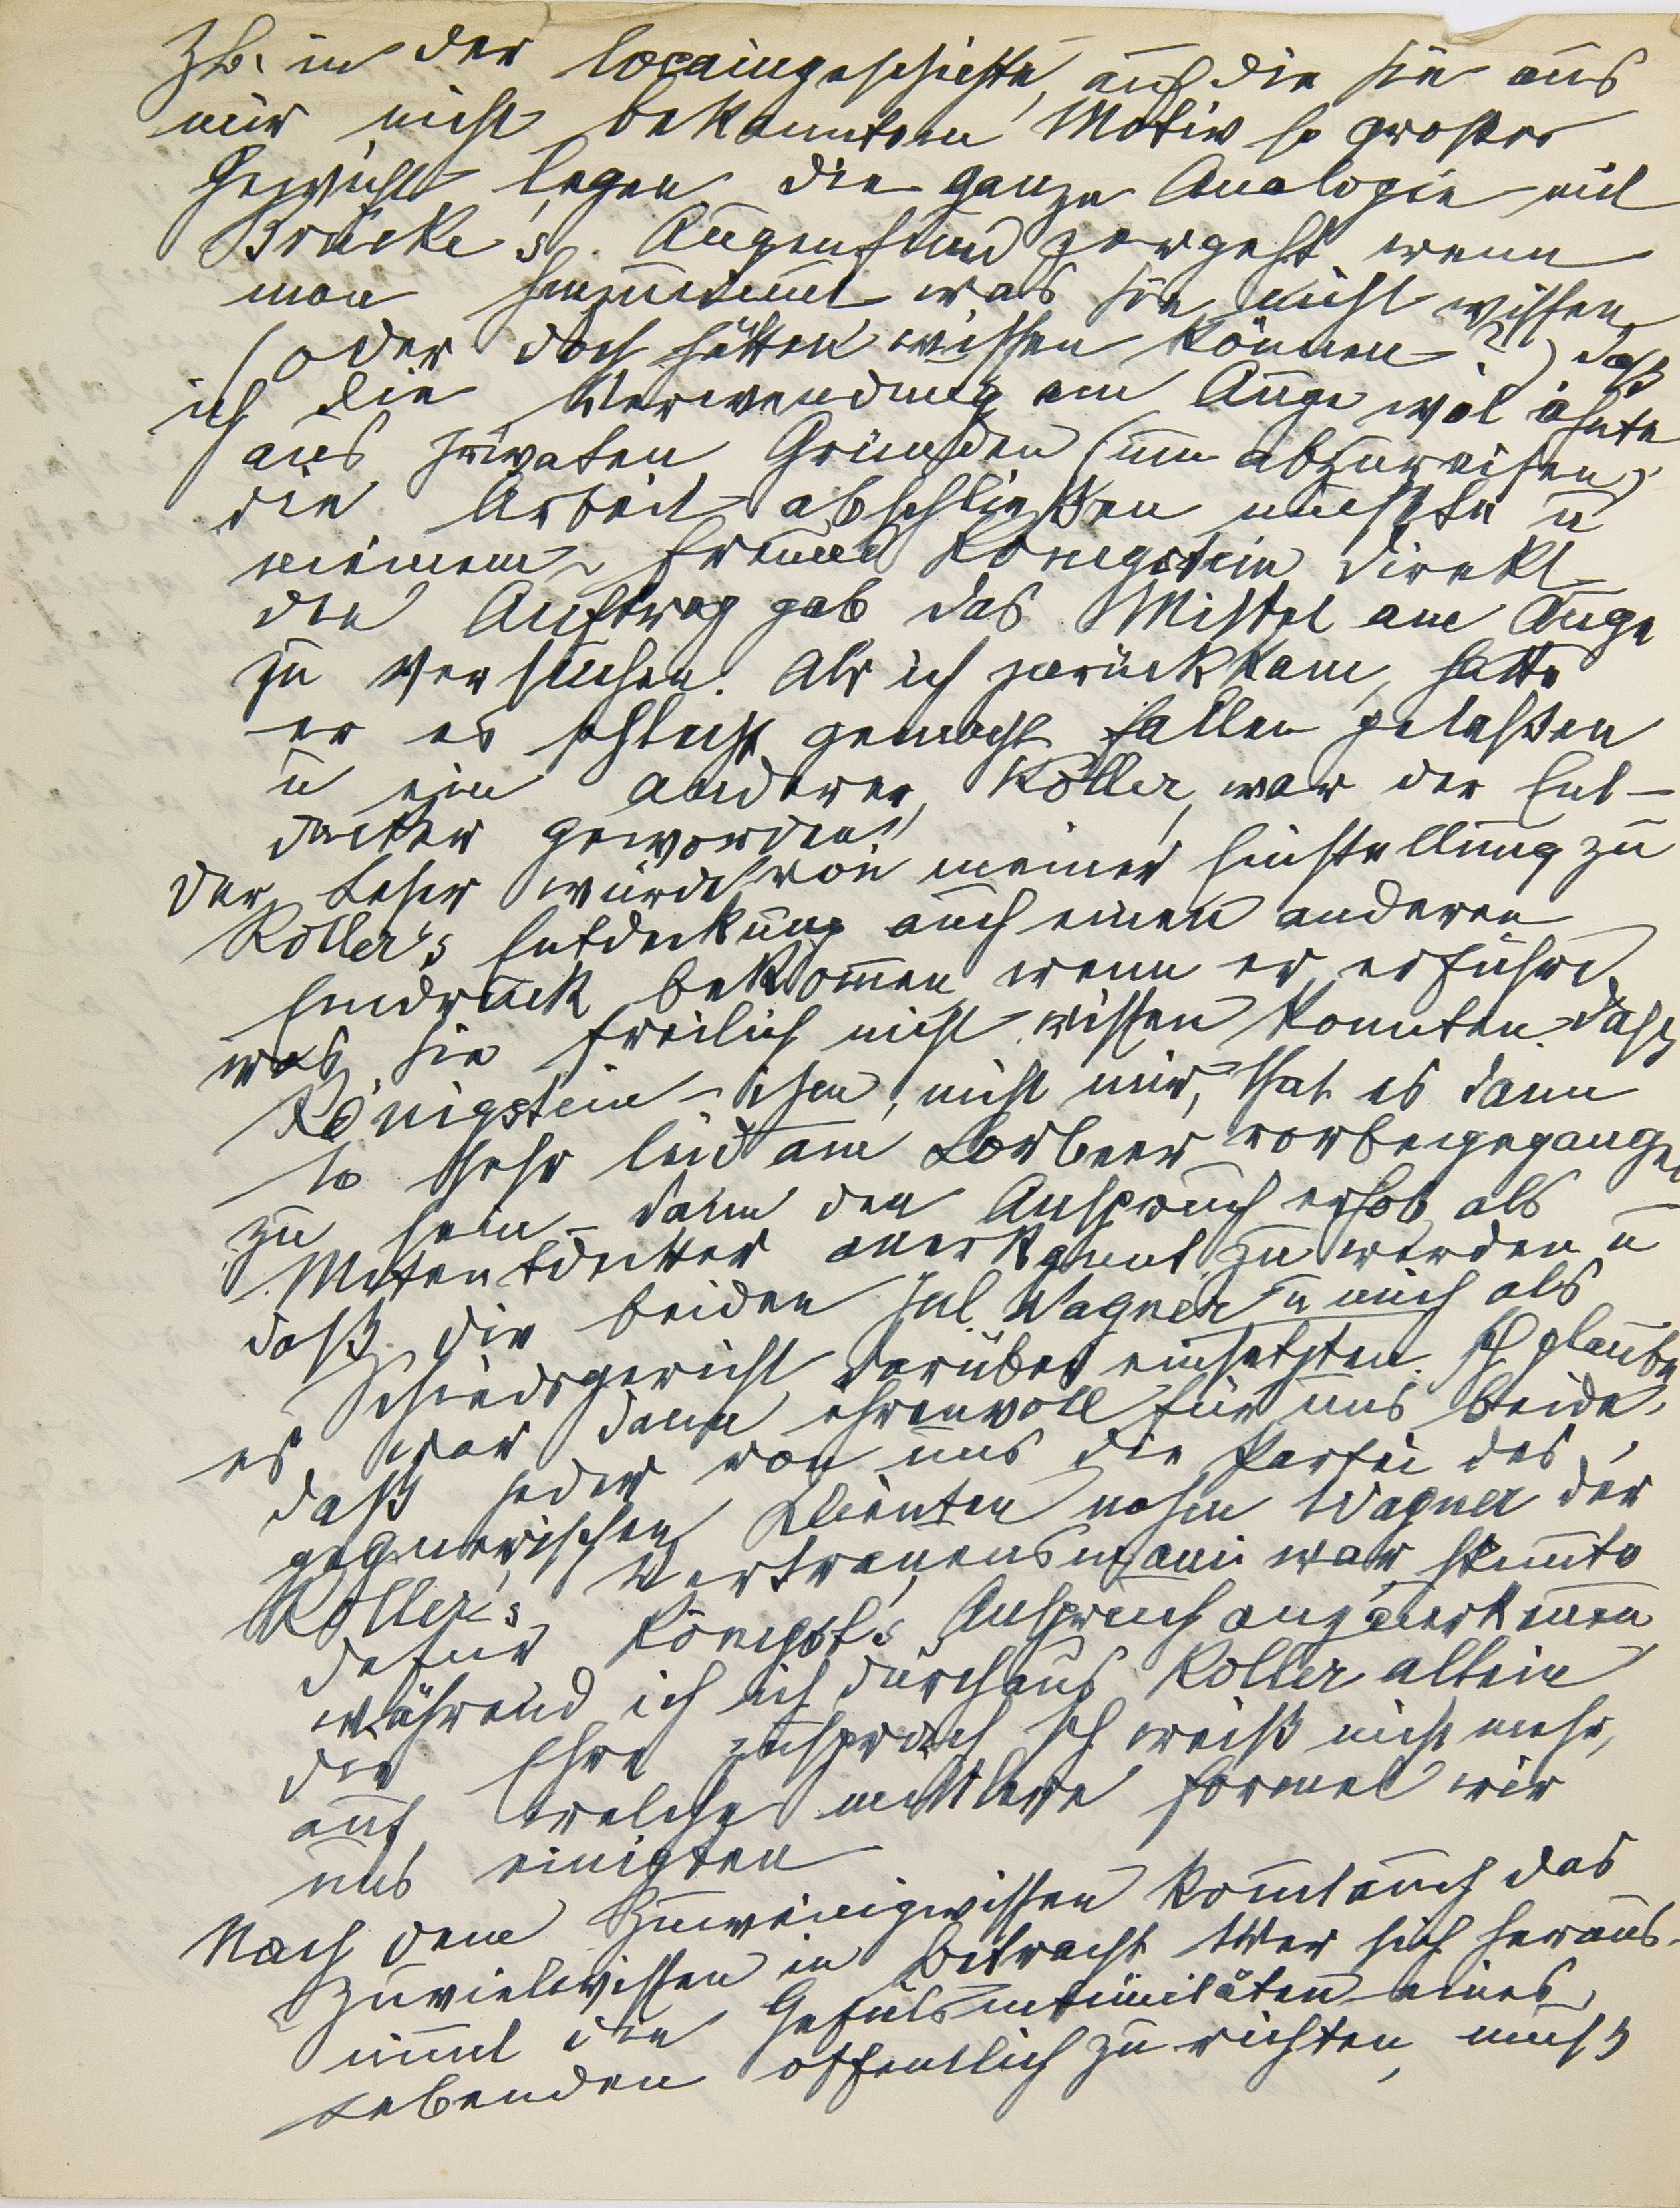 Zb. in der Cocaingeschichte, auf die Sie aus
mir nicht bekanntem Motiv so großes
Gewicht legen, die ganze Analogie mit
Brücke's Augenfund zergeht wenn
man hinzunimmt was Sie nicht wissen,
(oder doch hätten wissen können?) daß
ich die Verwendung am Auge wol ahnte
aus privaten Gründen (um abzureisen)
die Arbeit abschließen mußte u
meinem Freund Königstein direkt
den Auftrag gab das Mittel am Auge
zu versuchen. Als ich zurückkam, hatte
er es schlecht gemacht fallen gelaßen
u ein anderer, Koller, war der Ent-
decker geworden.
Der Leser würde von meiner Einstellung zu
Koller's Entdeckung auch einen anderen
Eindruck bekommen wenn er erführe
was Sie freilich nicht wissen konnten, daß
Königstein – ihm, nicht mir, that es dann
so sehr leid am Lorbeer vorbeigegangen
zu sein – dann den Anspruch erhob, als
Mitentdecker anerkannt zu werden u
daß die beiden Jul. Wagner u mich als
Schiedsgericht darüber einsetzten. Ich glaube
es war dann ehrenvoll für uns beide,
daß jeder von uns die Partei des
gegnerischen Klienten nahm Wagner der
Koller's Vertrauensmann war stimmte
dafür Königst's Anspruch anzuerkennen
während ich ich durchaus Koller allein
die Ehre zusprach Ich weiß nicht mehr,
auf welche mittlere Formel wir
uns einigten
Nach dem Zuwenigwissen kommt auch das
Zuvielwissen in Betracht Wer sich heraus-
nimmt die Gefühlsintimitäten eines
Lebenden öffentlich zu richten, muß